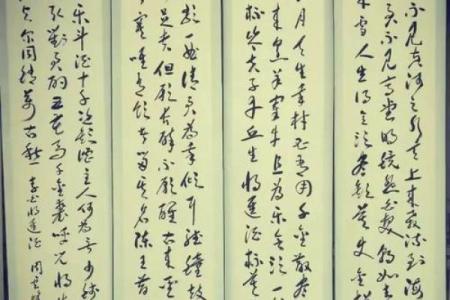 不见黄河之水天上来奔流到海
君不见高堂明镜悲白发朝如青
雪人生得意须尽欢莫使金樽
月天生我材必有用千金散尽
来烹羊宰牛且为乐会须一
杯岑夫子丹丘生将进酒杯莫
歌一曲请君为我倾耳听钟鼓
足贵但愿长醉不愿醒古来圣
寞唯有饮者留其名陈王昔
乐斗酒十千恣欢谑主人何为言少钱
取对君酌五花马千金裘呼儿将出
与尔同销万古愁 李白将进酒 周